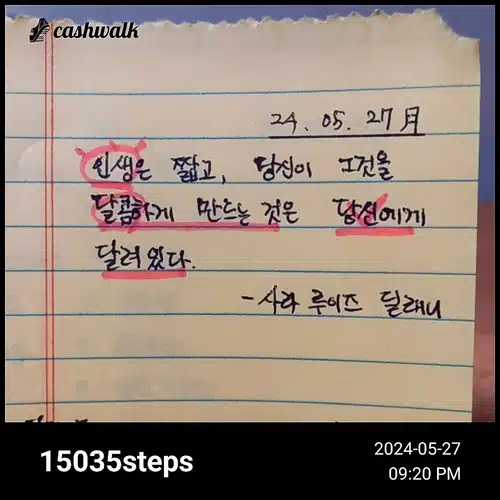 cashwalk
24. 05. 27 月
인생은 짧고, 당신이 그것을
달콤하게 만드는 것은 당신에게
달려있다.
- 사라 루이즈 딜래니
15035steps
2024-05-27
09:20 PM